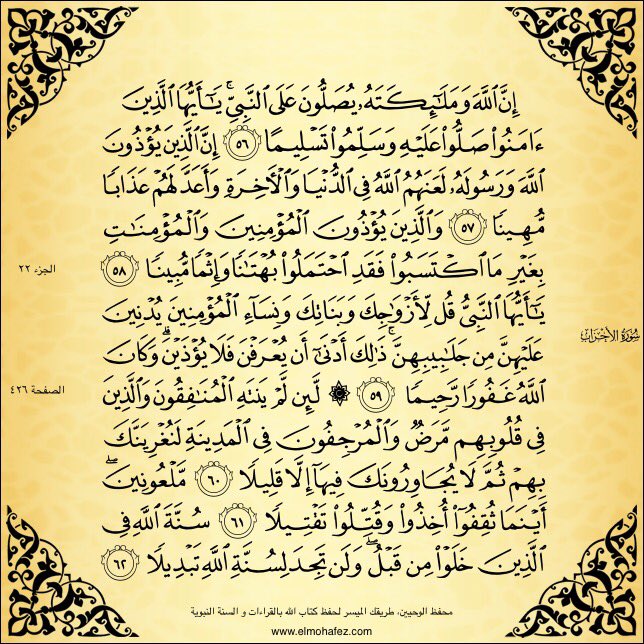 إِنَّ ٱللَّهَ وَمَلَٰٓئِكَتَهُۥ يُصَلُّونَ عَلَى ٱلنَّبِيِّۚ يَٰٓأَيُّهَا ٱلَّذِينَ
ءَامَنُوا۟ صَلُّوا۟ عَلَيْهِ وَسَلِّمُوا۟ تَسْلِيمًا ٥٦ إِنَّ ٱلَّذِينَ يُؤْذُونَ
ٱللَّهَ وَرَسُولَهُۥ لَعَنَهُمُ ٱللَّهُ فِي ٱلدُّنْيَا وَٱلْأَخِرَةِ وَأَعَدَّ لَهُمْ عَذَابًا
مُّهِينًا ٥٧ وَٱلَّذِينَ يُؤْذُونَ ٱلْمُؤْمِنِينَ وَٱلْمُؤْمِنَٰتِ
بِغَيْرِ مَا ٱكْتَسَبُوا۟ فَقَدِ ٱحْتَمَلُوا۟ بُهْتَٰنًا وَإِثْمًا مُّبِينًا ٥٨
يَٰٓأَيُّهَا ٱلنَّبِيُّ قُل لِّأَزْوَٰجِكَ وَبَنَاتِكَ وَنِسَآءِ ٱلْمُؤْمِنِينَ يُدْنِينَ
عَلَيْهِنَّ مِن جَلَٰبِيبِهِنَّۚ ذَٰلِكَ أَدْنَىٰٓ أَن يُعْرَفْنَ فَلَا يُؤْذَيْنَۗ وَكَانَ
ٱللَّهُ غَفُورًا رَّحِيمًا ٥٩ ۞ لَّئِن لَّمْ يَنتَهِ ٱلْمُنَٰفِقُونَ وَٱلَّذِينَ
فِي قُلُوبِهِم مَّرَضٌ وَٱلْمُرْجِفُونَ فِي ٱلْمَدِينَةِ لَنُغْرِيَنَّكَ
بِهِمْ ثُمَّ لَا يُجَاوِرُونَكَ فِيهَآ إِلَّا قَلِيلًا ٦٠ مَّلْعُونِينَۖ
أَيْنَمَا ثُقِفُوٓا۟ أُخِذُوا۟ وَقُتِّلُوا۟ تَقْتِيلًا ٦١ سُنَّةَ ٱللَّهِ فِي
ٱلَّذِينَ خَلَوْا۟ مِن قَبْلُۖ وَلَن تَجِدَ لِسُنَّةِ ٱللَّهِ تَبْدِيلًا ٦٢
الجزء ٢٢
سُورَةُ الأَحْزَابِ
الصفحة ٤٢٦
محفظ الوحيين، طريقك الميسر لحفظ كتاب الله بالقراءات و السنة النبوية
www.elmohafez.com